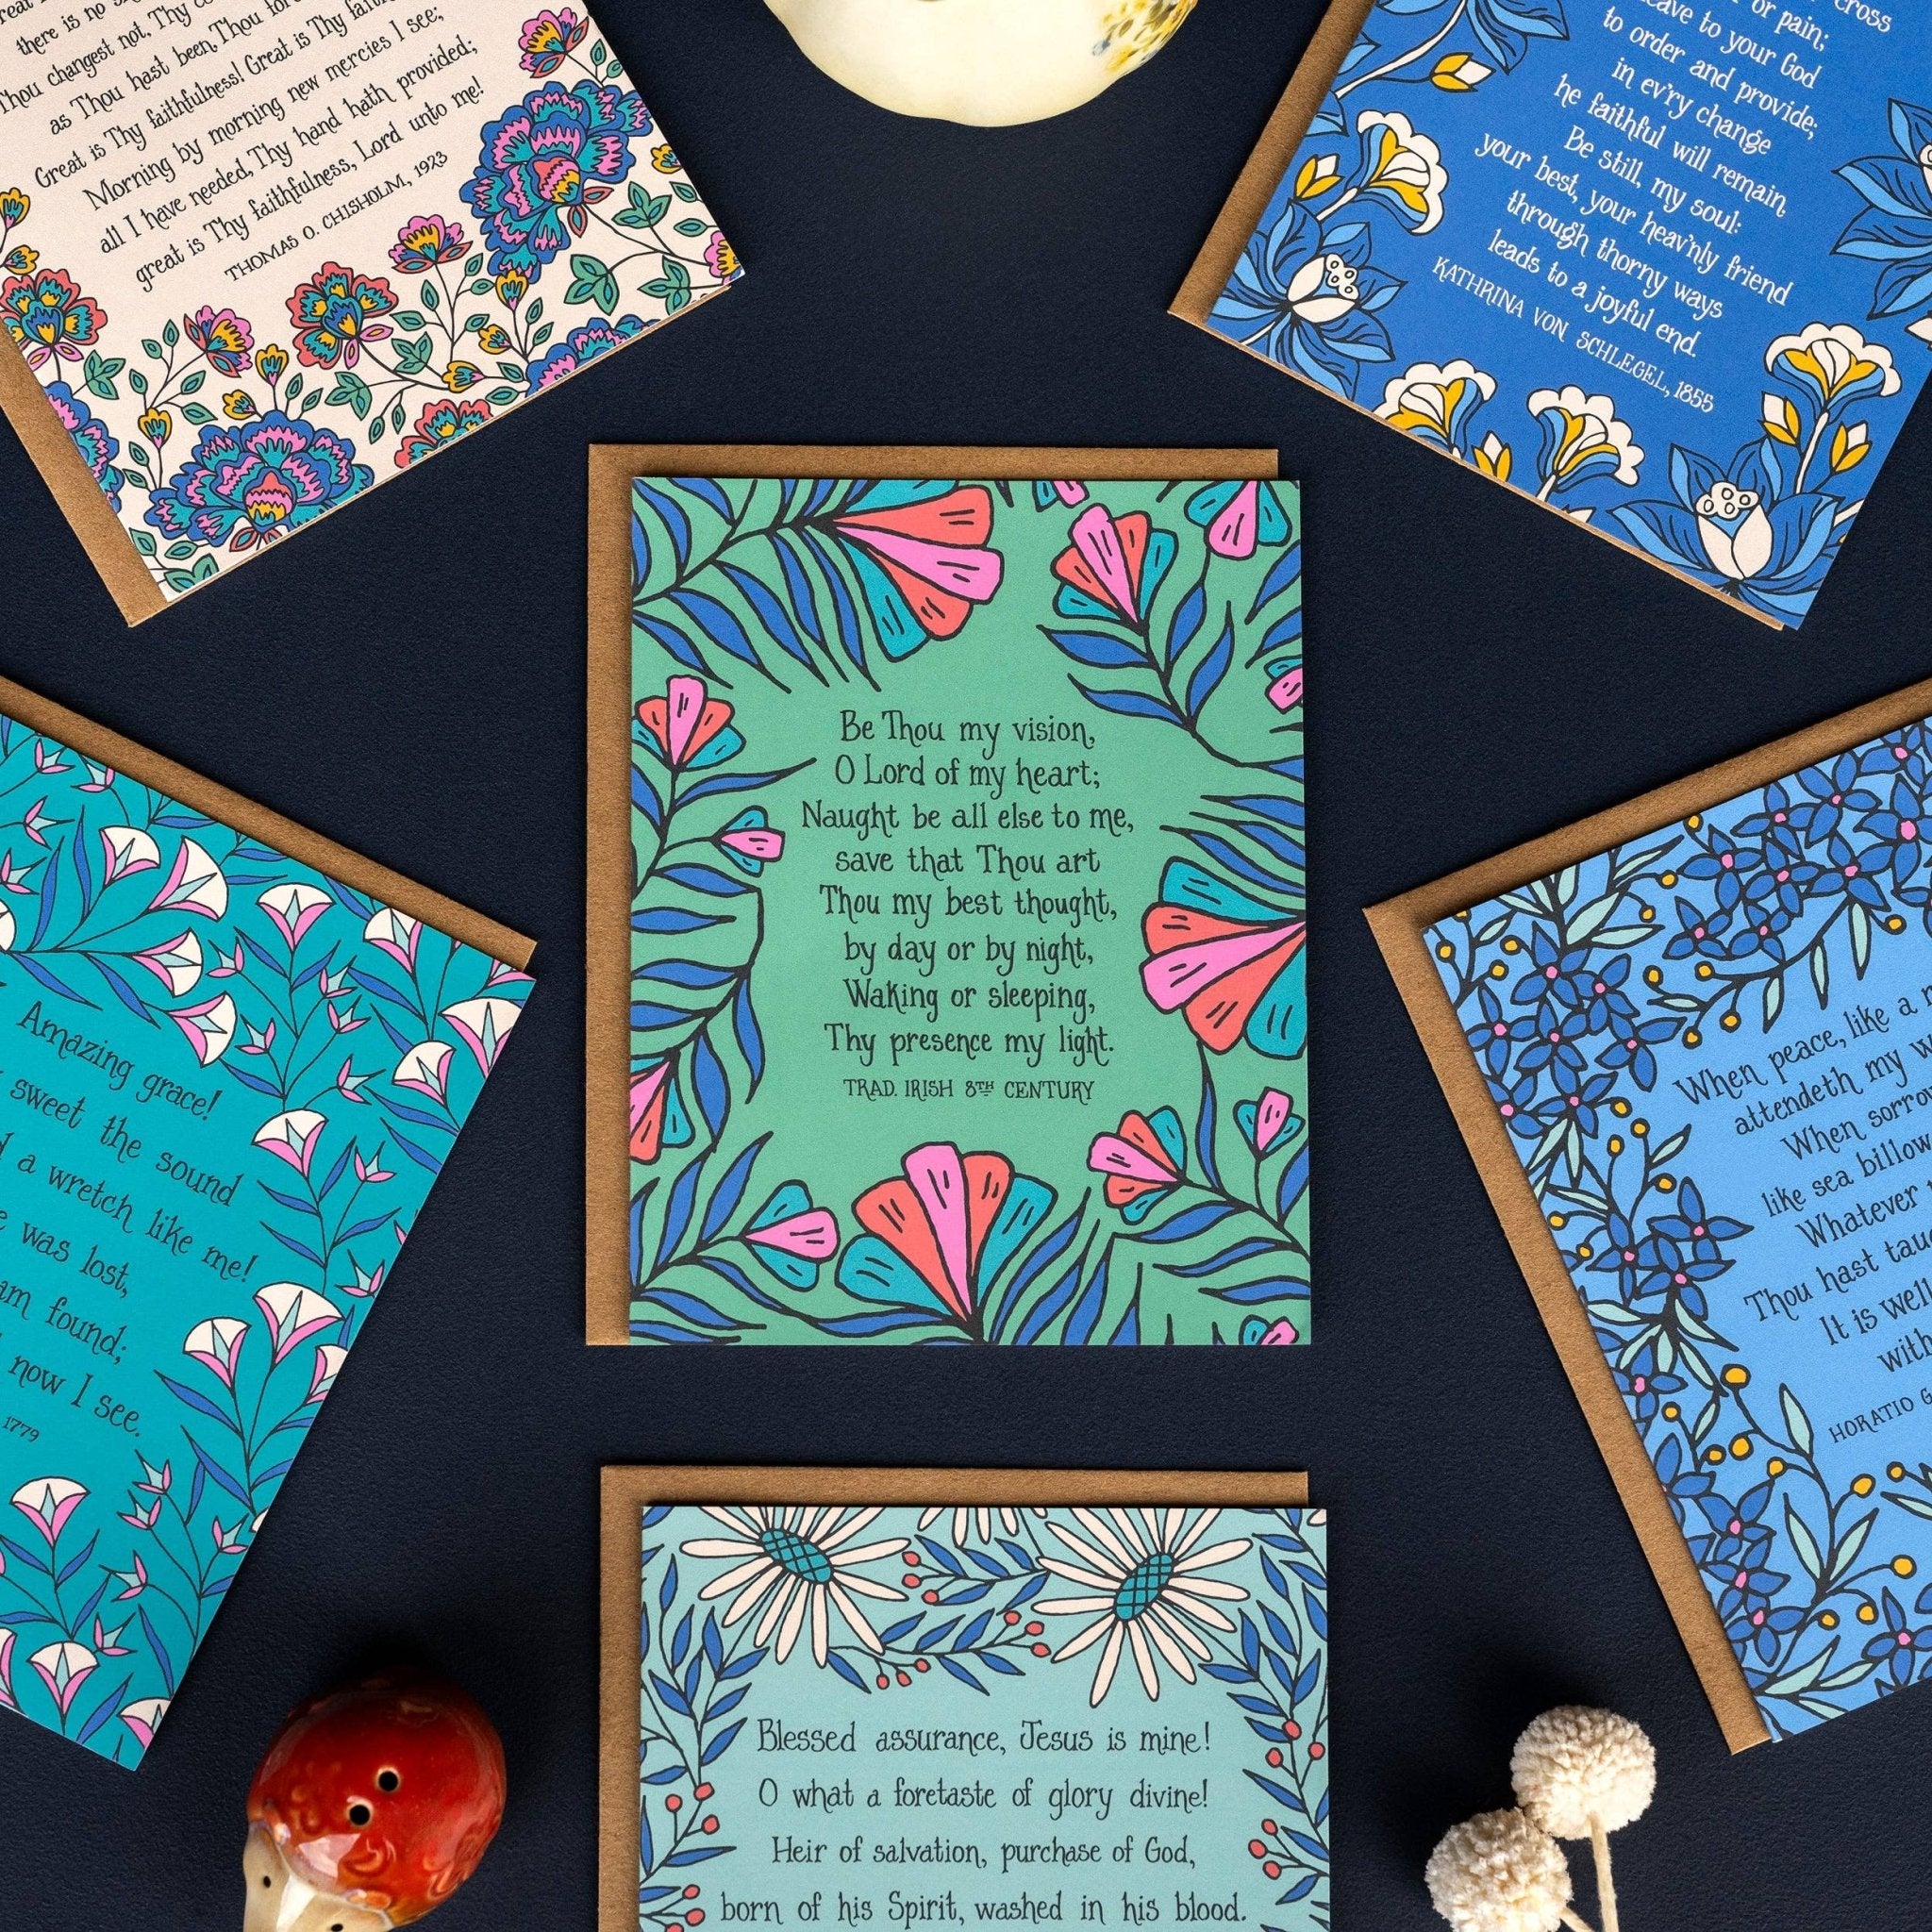 there is no
Thou changest not, Thy
as Thou hast been, Thou
Great is Thy faithfulness! Great is Thy
Morning by morning new mercies I see;
all I have needed, Thy hand hath provided;
great is Thy faithfulness, Lord unto me!
THOMAS O. CHISHOLM, 1923
cross
or pain;
to your God
to order and provide;
in ev'ry change
he faithful will remain.
Be still, my soul:
your best, your heav'nly friend
through thorny ways
leads to a joyful end.
KATHRINA VON SCHLEGEL, 1855
Be Thou my vision,
O Lord of my heart;
Naught be all else to me,
save that Thou art
Thou my best thought,
by day or by night,
Waking or sleeping,
Thy presence my light.
TRAD. IRISH 8TH CENTURY
Amazing grace!
sweet the sound
a wretch like me!
was lost,
am found;
now I see.
1779
When peace, like a
attendeth my
When
like sea
Whatever
Thou hast
It is well
HORATIO
Blessed assurance, Jesus is mine!
O what a foretaste of glory divine!
Heir of salvation, purchase of God,
born of his Spirit, washed in his blood.